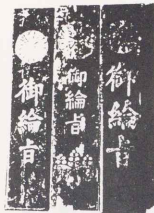 御綸旨
御綸旨
御綸旨